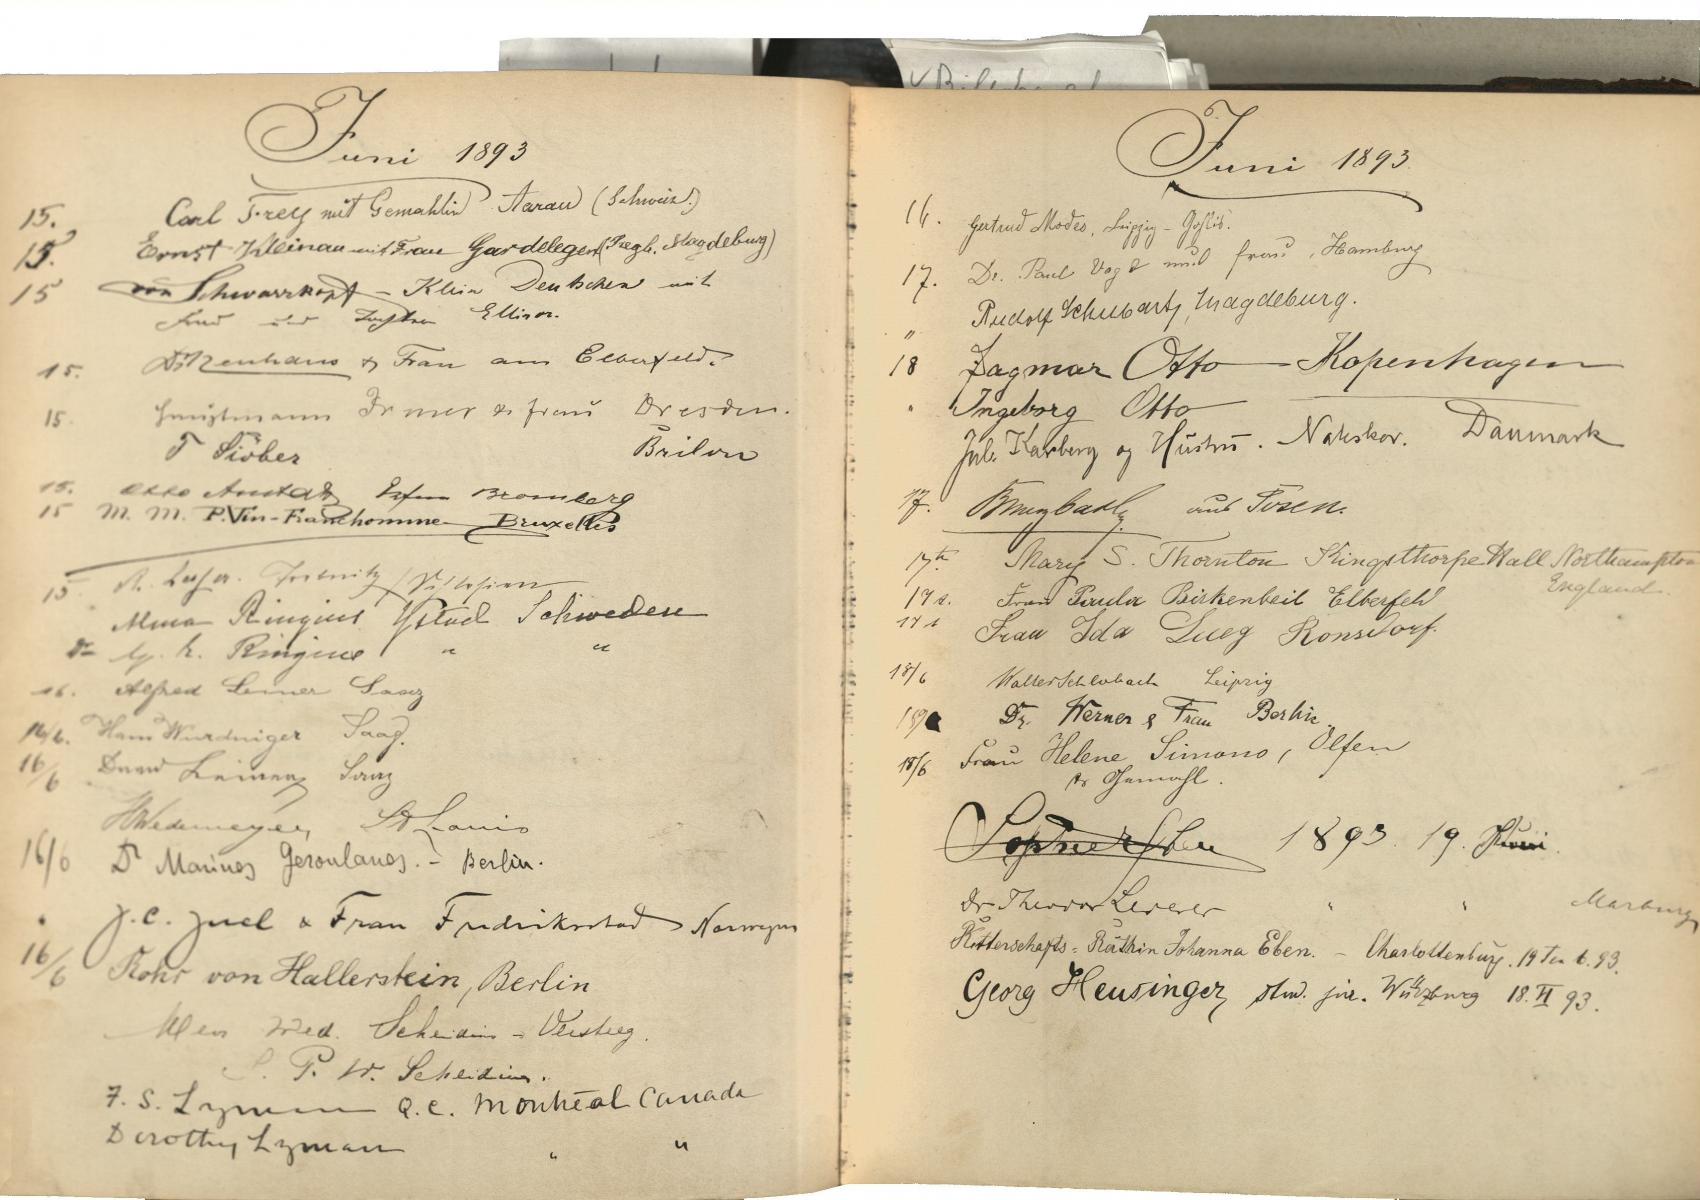 Juni 1893
15. Carl Frey mit Gemahlin Aarau (Schweiz.)
15. Ernst Kleinau mit Frau Gardelegen (Regb. Magdeburg)
15 von Schwarzkopf - Klein Deutschen mit
15. & Frau aus Elberfeld.
15. Hauptmann Irmer & Frau Dresden.
T Sieber Brilon
15. Otto Bromberg
15 M. M. P. Vin-Franchomme Bruxelles
15
Alma Ringius Ystad Schweden
Dr Ringius " "
16. Alfred Leiner Saaz
16/6. Hans Wurdniger Saaz.
16/6 Saaz
HWedemeyer, St Louis
16/6 Dr Marinos Geroulanos. - Berlin.
" J. C. Juel & Frau Fredrikstad Norwegen
16/6 Rohr von Hallerstein, Berlin
Med. Scheidius - Versteeg.
P. W. Scheidius.
F. S. Lyman Q. C. Montreal Canada
Dorothy Lyman " "
Juni 1893.
16. Gertrud Modes, Leipzig - Gohlis.
17. Dr. Paul Vogt und Frau, Hamburg
" Rudolf Schubartz, Magdeburg.
18 Dagmar Otto - Kopenhagen
" Ingeborg Otto
Jul. Karberg og Hustru. Nakskov. Danmark
17. aus Posen.
17th Mary S. Thornton Kingsthorpe Hall Northampton
England.
17 s. Frau Paula Birkenbeil Elberfeld
17 s Frau Ida Lueg Ronsdorf.
18/6 Walter Schlobach Leipzig
Dr. Werner & Frau Berlin.
18/6 Frau Helene Simons, Olfen
& Gemahl.
1893. 19. Juni.
Dr Theodor " " Marburg
Ritterschafts-Räthin Johanna Eben. - Charlottenburg. 19ten 6. 93.
Georg Heusinger, stud. jur. Würzburg 18. VI 93.